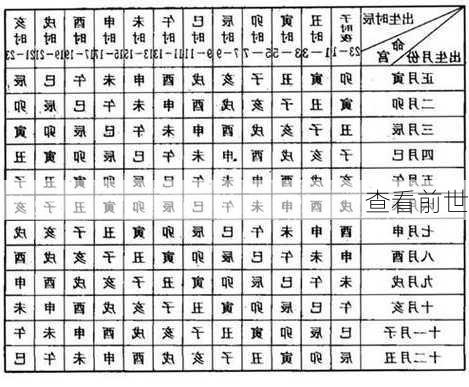 出生时辰
命宫
出生月份
子时夜 23-1 丑时 1-3 寅时 3-5 卯时 5-7 辰时 7-9 巳时 9-11 午时 11-13 未时 13-15 申时 15-17 酉时 17-19 戌时 19-21 亥时 21-23
正月寅 卯 寅 丑 子 亥 戌 酉 申 未 午 巳 辰
二月卯 寅 丑 子 亥 戌 酉 申 未 午 巳 辰 卯
三月辰 丑 子 亥 戌 酉 申 未 午 巳 辰 卯 寅
四月巳 子 亥 戌 酉 申 未 午 巳 辰 卯 寅 丑
五月午 亥 戌 酉 申 未 午 巳 辰 卯 寅 丑 子
戌 酉 申 未 午 巳 辰 卯 寅 丑 子 亥
查看前世
七月申 酉 申 未 午 巳 辰 卯 寅 丑 子 亥 戌
八月酉 申 未 午 巳 辰 卯 寅 丑 子 亥 戌 酉
九月戌 未 午 巳 辰 卯 寅 丑 子 亥 戌 酉 申
十月亥 午 巳 辰 卯 寅 丑 子 亥 戌 酉 申 未
十一月子 巳 辰 卯 寅 丑 子 亥 戌 酉 申 未 午
十二月丑 辰 卯 寅 丑 子 亥 戌 酉 申 未 午 巳